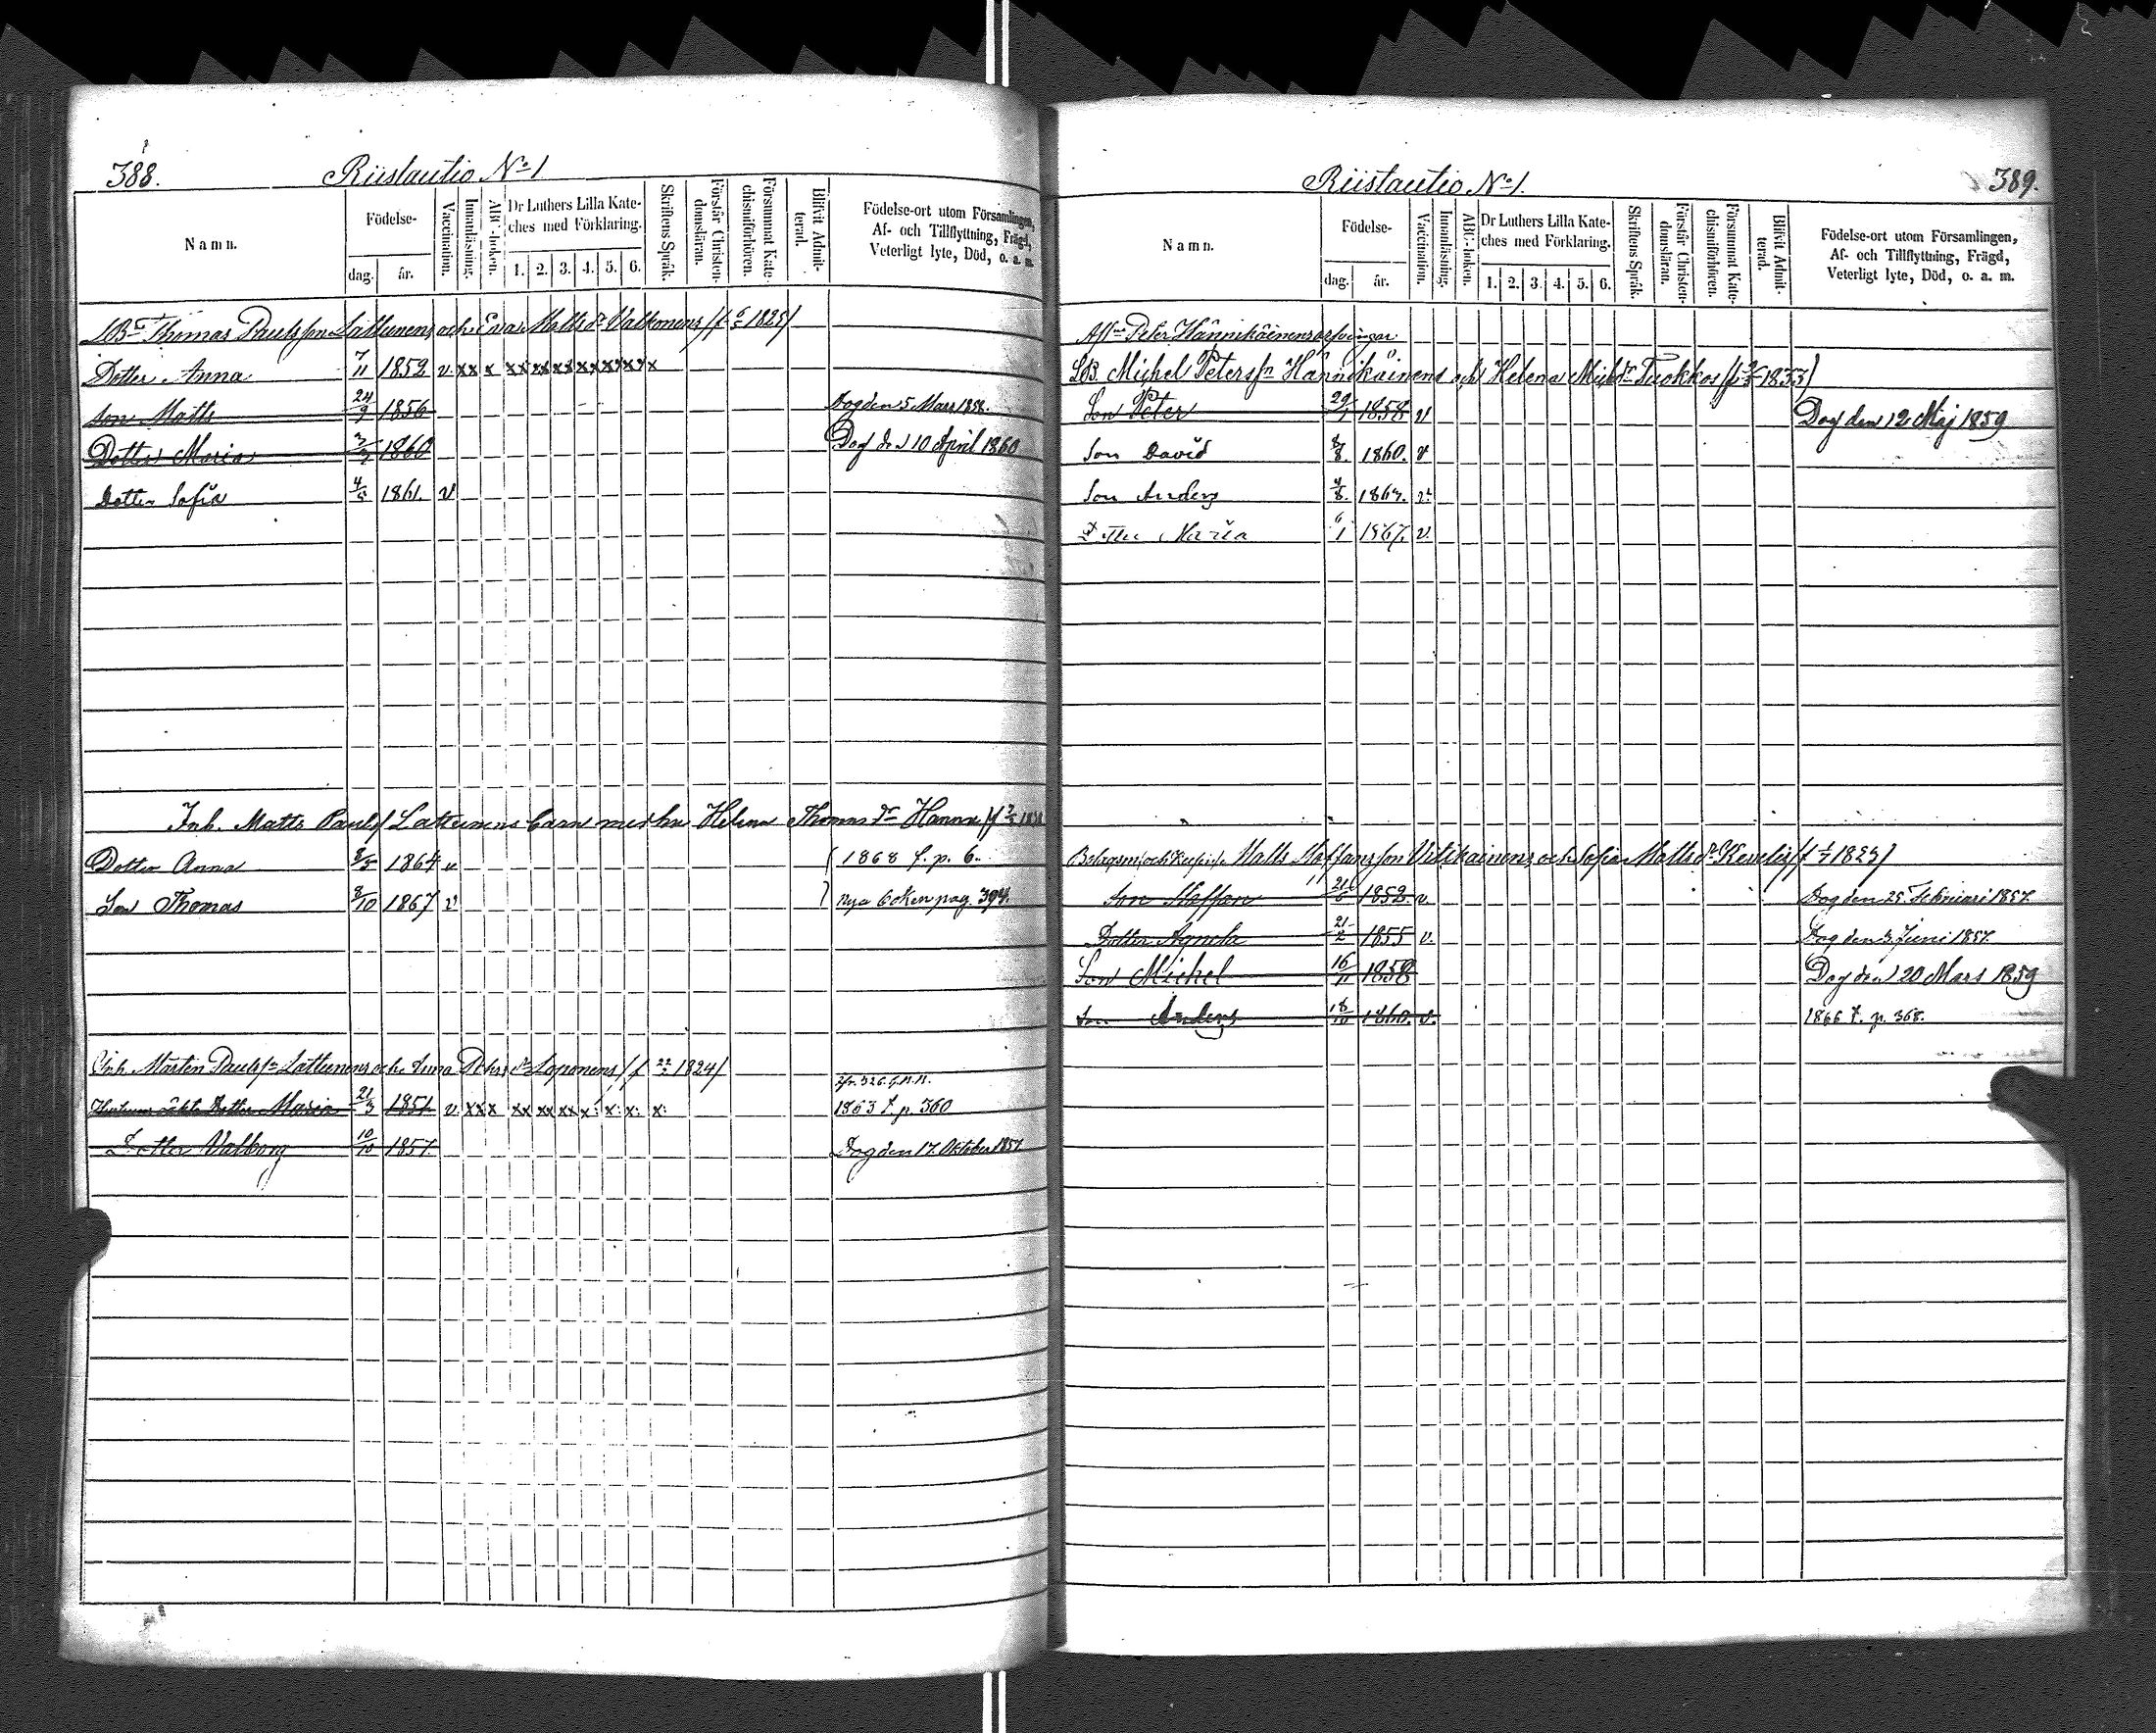 388.
Riistautio No 1
Namn.
Födelse-
dag.
år.
Vaccination.
Innanläsning.
ABC-boken.
Dr Luthers Lilla Kate-
ches med Förklaring.
1. 2. 3. 4. 5. 6.
Skriftens Språk.
Förstår Christen-
domsläran.
Försummat Kate-
chismiförhören.
Blifvit Admit-
terad.
Födelse-ort utom Församlingen,
Af- och Tillflyttning, Frägd,
Veterligt lyte, Död, o. a. m.
Thomas Paulsson Lattunens och Matts dr Valkonens 1825
Dotter Anna 7/11 1852 v. xx x xx xx xx xx xx x
Son Matts 24/9 1856 Dog den 5 Mars 1858.
Dotter Maria 1860 Dog den 10 April 1860
Dotter Sofia 1861. v
Inh. Matts Paulss Lattunens barn med hu Helena Thomas dr Hanna
Dotter Anna 1864 v 1868 f. p. 6.
Son Thomas 8/10 1867 v nya boken pag. 394.
Inh. Mårten Paulss Lattunens och Anna dr Loponens 1824
Dotter Maria 21/3 1851 v. xxx xx xx xx x: x: x: x: 1863 t. p. 360
Dotter Valborg 10/10 1857. Dog den 17. Oktober 1857.
Riistautio No 1.
389.
Namn.
Födelse-
dag.
år.
Vaccination.
Innanläsning.
ABC-boken.
Dr Luthers Lilla Kate-
ches med Förklaring.
1. 2. 3. 4. 5. 6.
Skriftens Språk.
Förstår Christen-
domsläran.
Försummat Kate-
chismiförhören.
Blifvit Admit-
terad.
Födelse-ort utom Församlingen,
Af- och Tillflyttning, Frägd,
Veterligt lyte, Död, o. a. m.
Peter Hännikäinens arfvingar
Michel Petersson Hännikäinens och Helena Mich dr Tuokkos 1833
Son Peter 29/1 1858 v Dog den 12 Maj 1859
Son David 1860. v
Son Anders
Dotter Maria 1867. v.
Matts Staffansson Vitikainens och Sofia Matts dr 1823
Son Staffan 21/6 1852. v. Dog den 25. Februari 1857.
Dotter Agneta 21/2 1855 v. Dog den 3. Juni 1857.
Son Michel 16/11 1858 Dog den 20 Mars 1859
Son Anders 18/10 1860. v. 1866 t. p. 368.